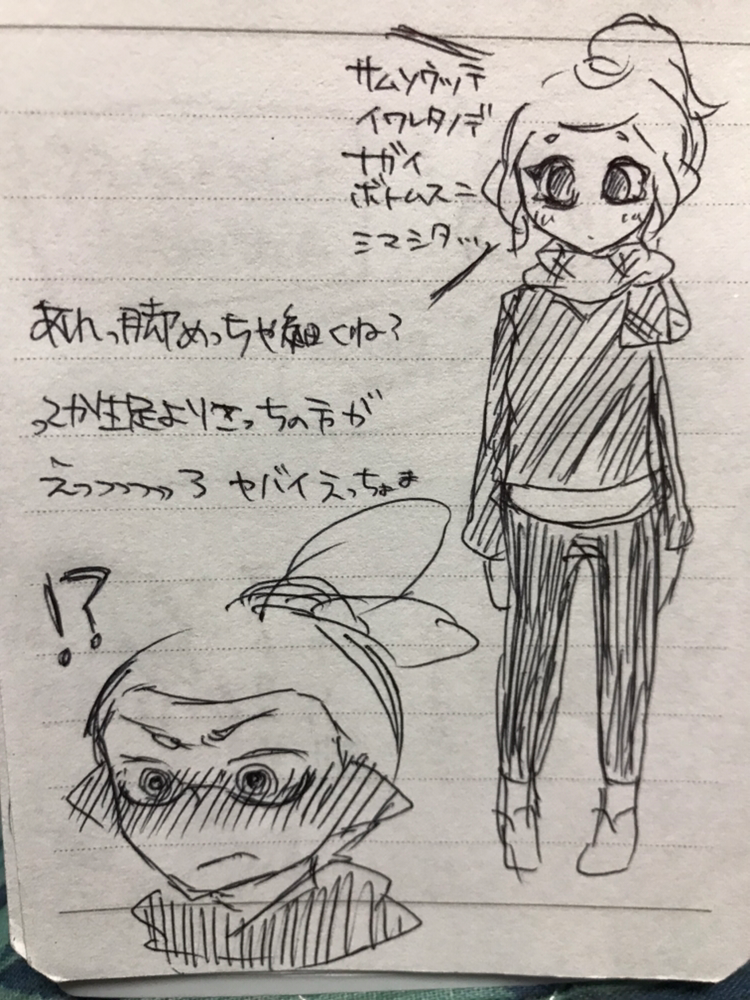 サムソウッテ
イワレタノデ
ナガイ
ボトムスニ
シマシタッ
あれっ脚めっちゃ細くね?
ってか生足よりこっちの方が
えっっっっっろ ヤバイえっちょま
!?